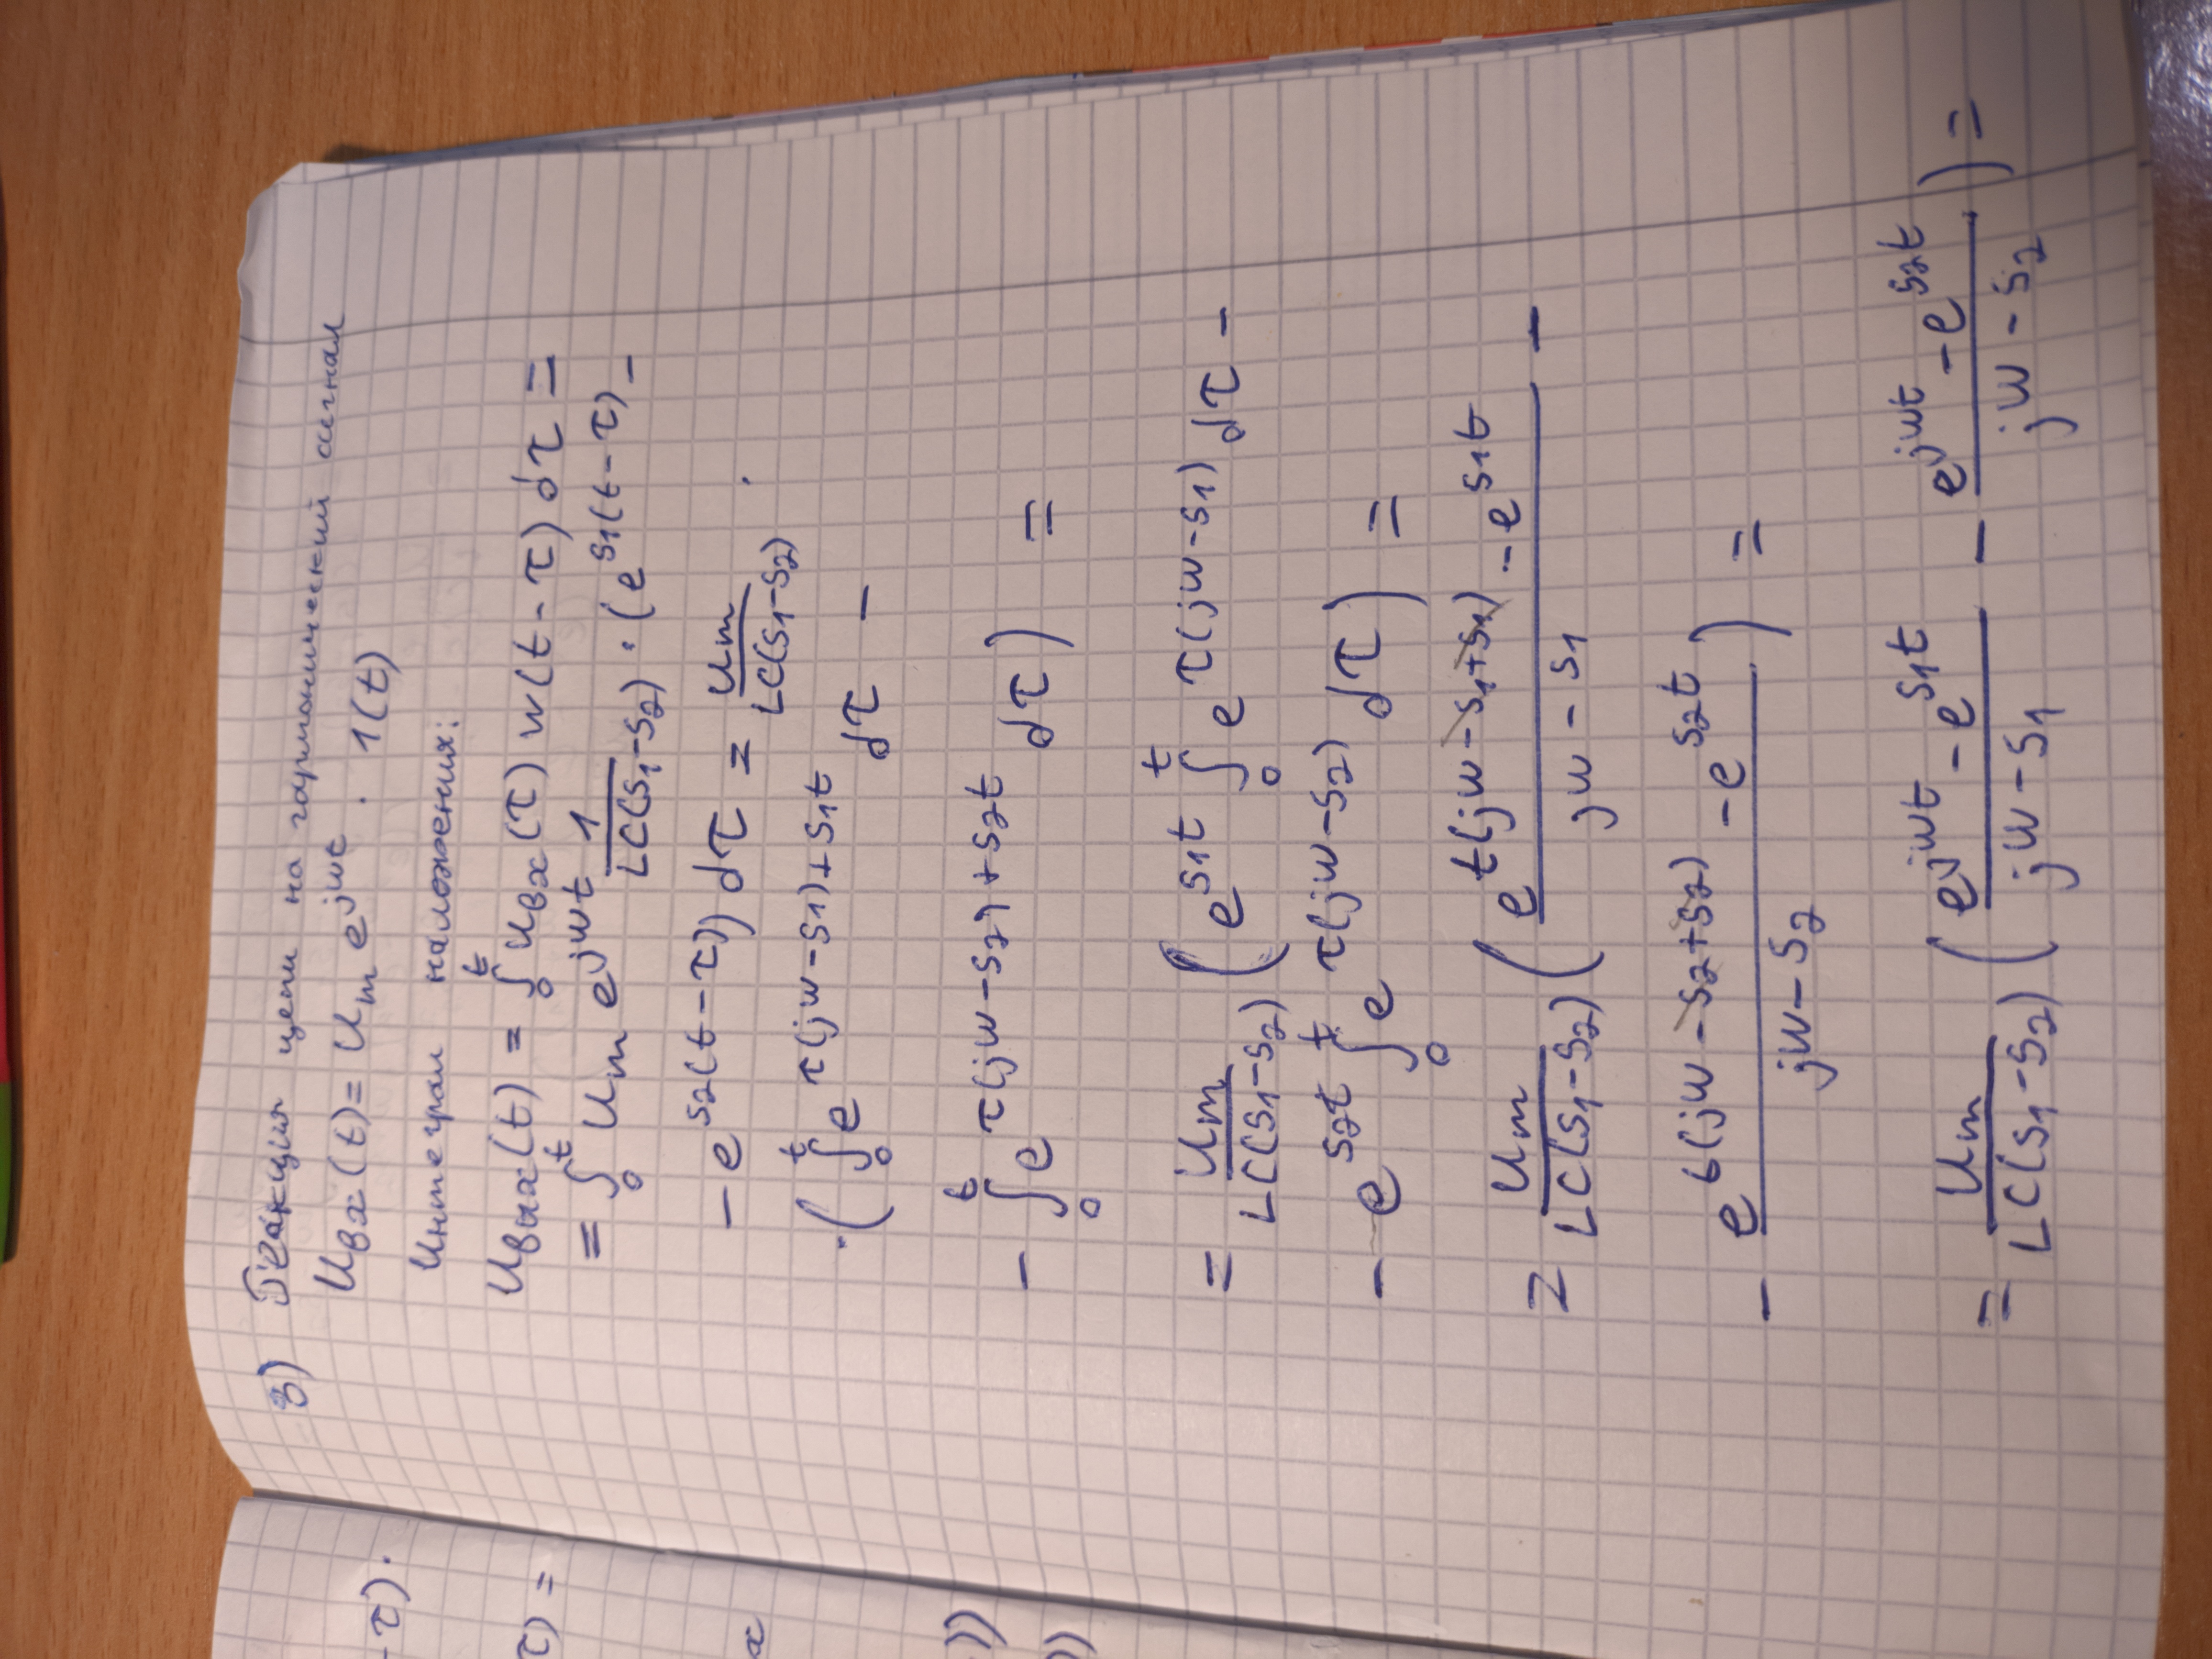 -τ)·
τ) =
x
·))
))
3) Реакция цепи на гармонический сигнал
Uвх(t) = Um e^{jωt} · 1(t)
Интеграл наложения:
Uвых(t) = ∫₀ᵗ Uвх(τ) w(t-τ) dτ =
= ∫₀ᵗ Um e^{jωt} 1/(LC(s₁-s₂)) · (e^{s₁(t-τ)} -
- e^{s₂(t-τ)}) dτ = Um/(LC(s₁-s₂)) ·
·( ∫₀ᵗ e^{τ(jω-s₁)+s₁t} dτ -
- ∫₀ᵗ e^{τ(jω-s₂)+s₂t} dτ ) =
= Um/(LC(s₁-s₂)) ( e^{s₁t} ∫₀ᵗ e^{τ(jω-s₁)} dτ -
- e^{s₂t} ∫₀ᵗ e^{τ(jω-s₂)} dτ ) =
= Um/(LC(s₁-s₂)) ( (e^{t(jω-s₁+s₁)} - e^{s₁t})/(jω-s₁) -
- (e^{t(jω-s₂+s₂)} - e^{s₂t})/(jω-s₂) ) =
= Um/(LC(s₁-s₂)) ( (e^{jωt} - e^{s₁t})/(jω-s₁) - (e^{jωt} - e^{s₂t})/(jω-s₂) ) =